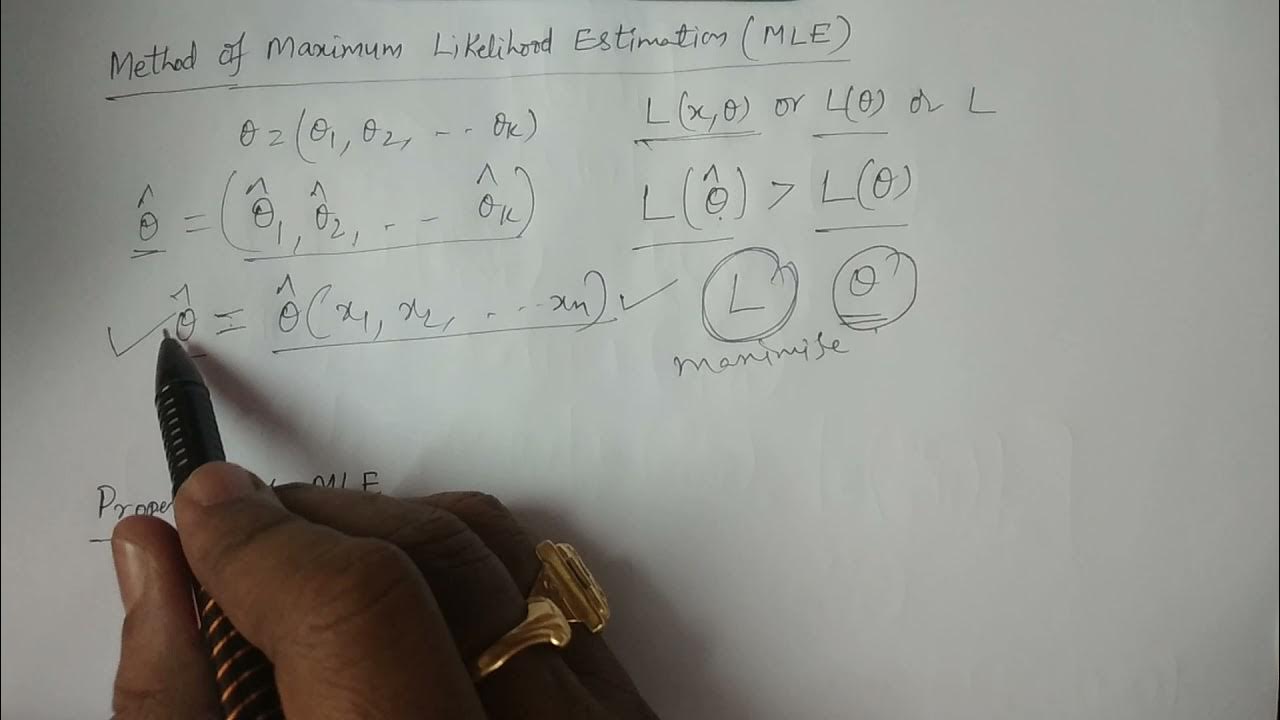 Method of Maximum Likelihood Estimation (MLE)
θ = (θ₁, θ₂, -.. θₖ)
L(x,θ) or L(θ) or L
θ̂ = (θ̂₁, θ̂₂, .- - θ̂ₖ)
L(θ̂) > L(θ)
✓ θ̂ = θ̂(x₁, x₂, . -.. xₙ) ✓
L θ
maximise
MLE